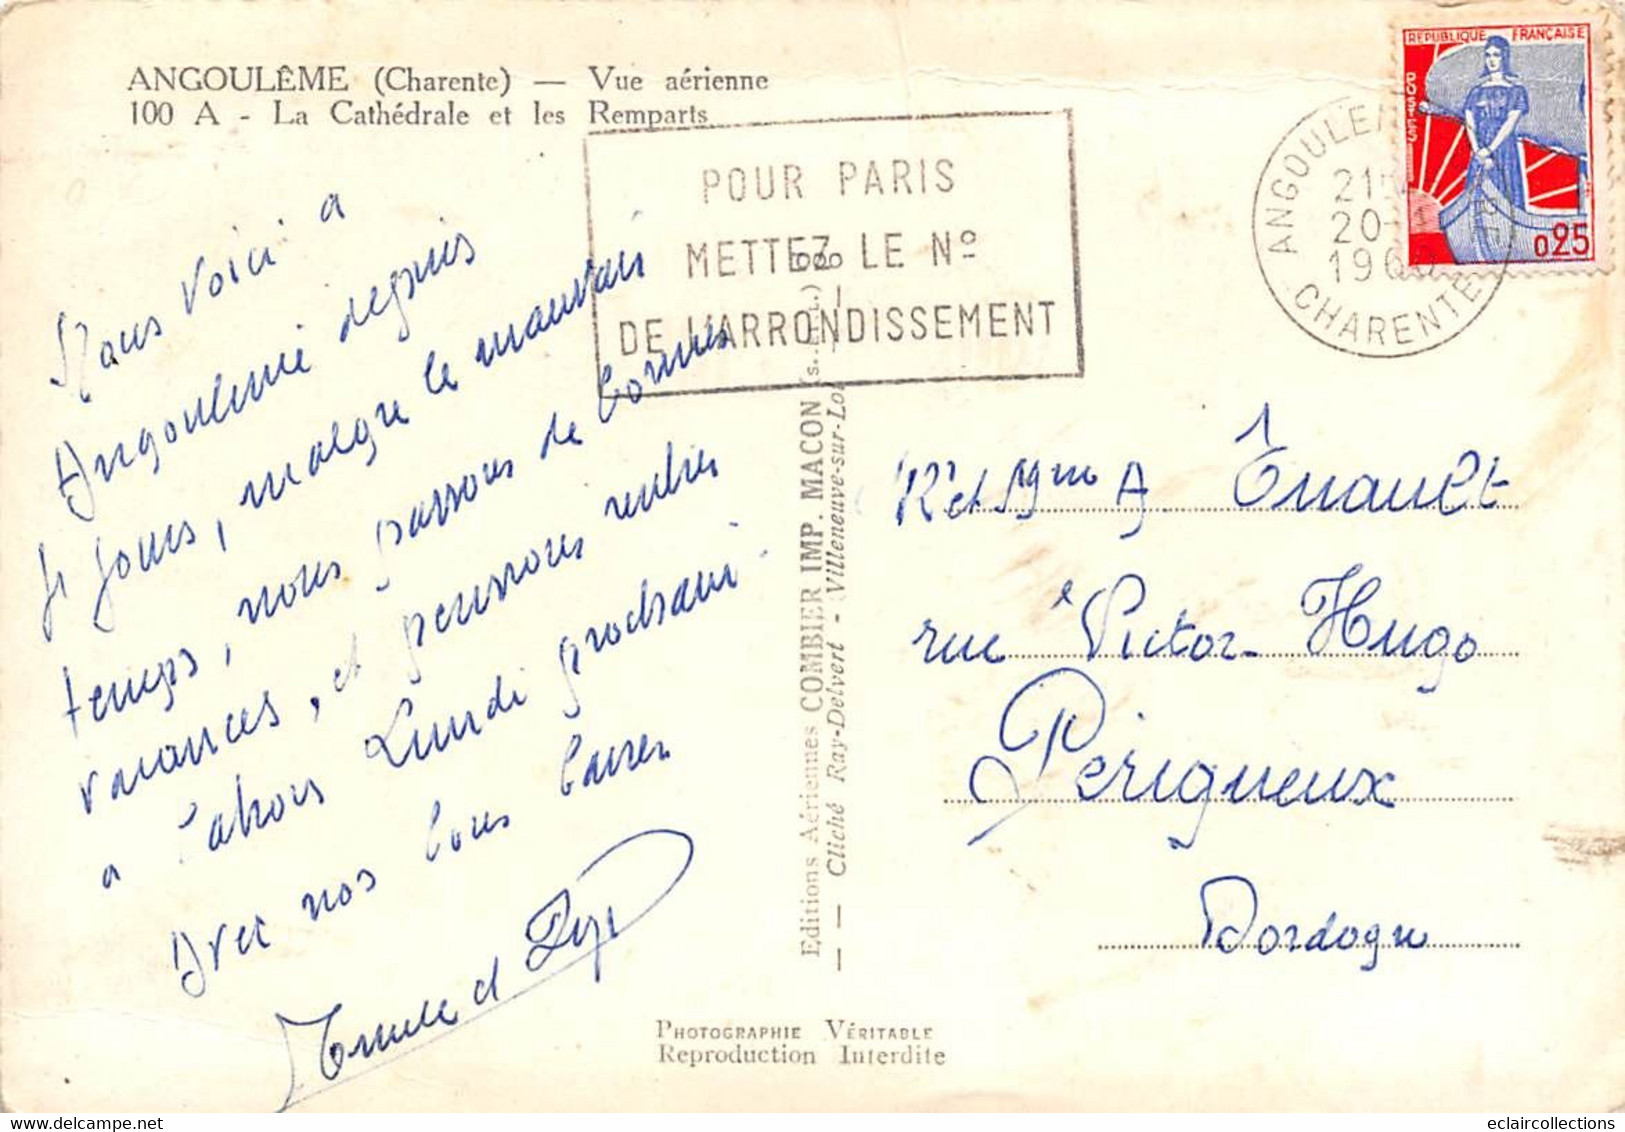 ANGOULÊME (Charente) — Vue aérienne
100 A - La Cathédrale et les Remparts
POUR PARIS
METTEZ LE Nº
DE L'ARRONDISSEMENT
RÉPUBLIQUE FRANÇAISE
POSTES
0,25
ANGOULEME
20-
196
CHARENTE
Nous voici a
Angouleme depuis
jours, malgre le mauvais
temps, nous passons de bonnes
vacances, et pensons rentrer
a Cahors Lundi prochain.
Avec nos bons baisers
et
Mr et Mme A
rue Victor-Hugo
Périgueux
Dordogne
Editions Aériennes COMBIER IMP. MACON (S.-et-L.)
— Cliché Ray-Delvert - Villeneuve-sur-Lot
PHOTOGRAPHIE VÉRITABLE
Reproduction Interdite
eclaircollections